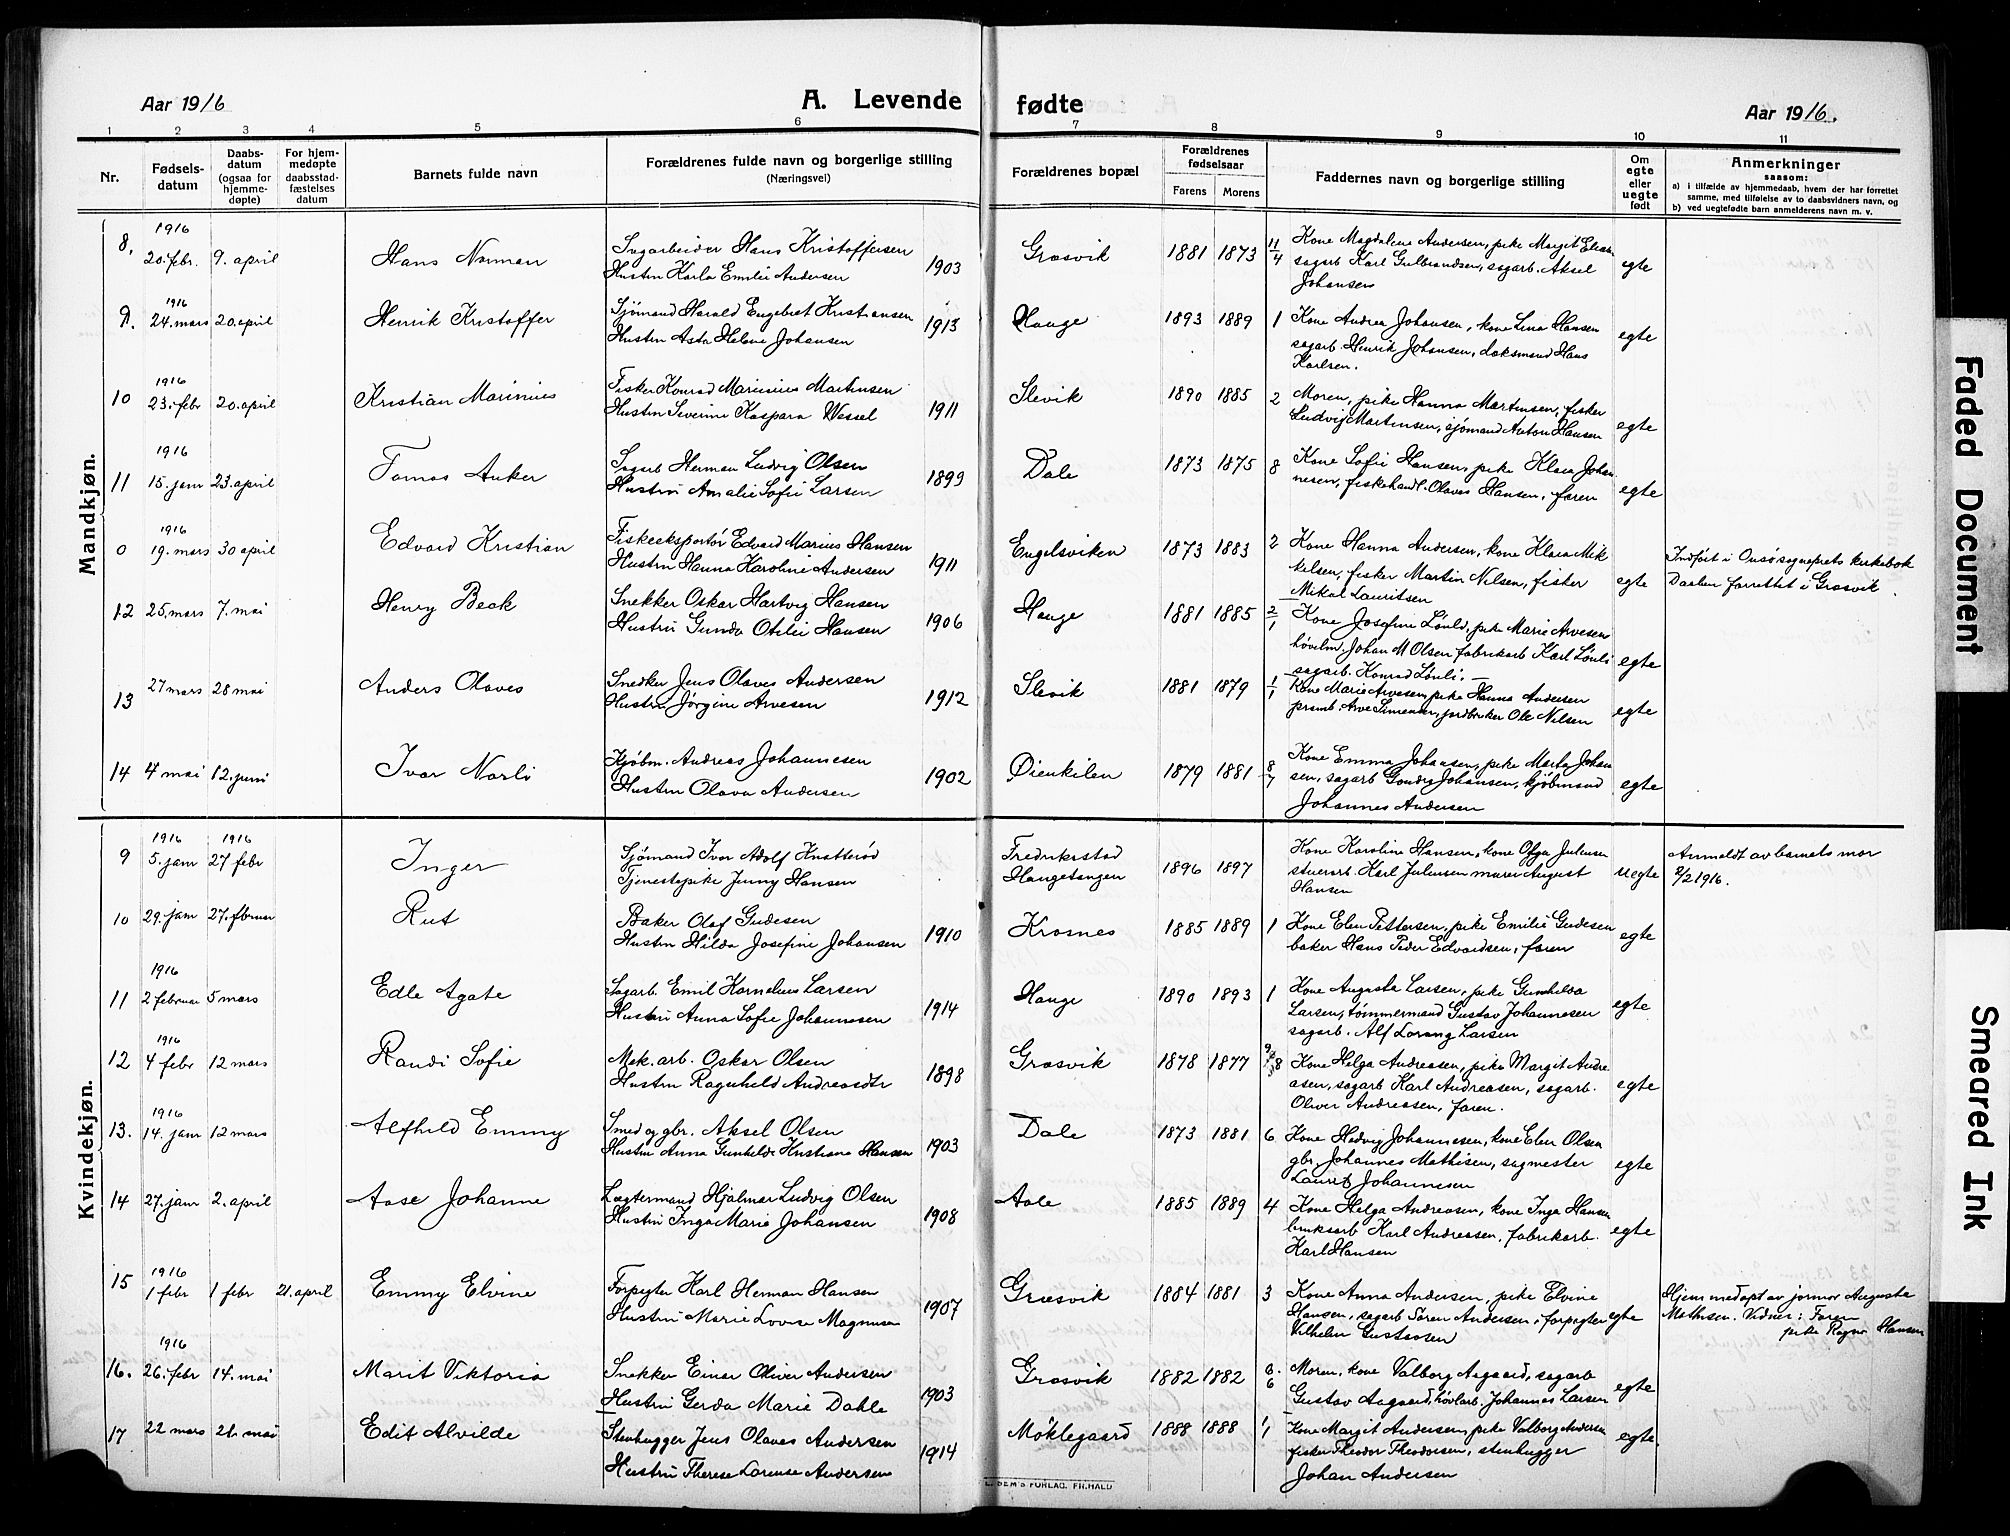 Aar 1916
A. Levende fødte
Aar 1916.
1 2 3 4 5 6 7 8 9 10 11
Nr.
Fødsels-
datum
Daabs-
datum
(ogsaa for
hjemme-
døpte)
For hjem-
medøpte
daabsstad-
fæstelses
datum
Barnets fulde navn
Forældrenes fulde navn og borgerlige stilling
(Næringsvei)
Forældrenes bopæl
Forældrenes
fødselsaar
Farens Morens
Faddernes navn og borgerlige stilling
Om
egte
eller
uegte
født
Anmerkninger
saasom:
a) i tilfælde av hjemmedaab, hvem der har forrettet
samme, med tilføielse av to daabsvidners navn, og
b) ved uegtefødte barn anmelderens navn m. v.
Mandkjøn.
8. 1916 20. febr. 9. april Hans Norman
Sagarbeider Hans Kristoffersen
Hustru Karla Emilie Andersen 1903
Græsvik 1881 1873 11/4
Kone Magdalene Andersen, pike Margit
sagarb Karl Gulbrandsen, sagarb. Aksel
Johansen
egte
9. 1916 24. mars 20. april Henrik Kristoffer
Sjømand Harald Engebret Kristiansen
Hustru Asta Helene Johansen 1913
Hauge 1893 1889 1
Kone Andrea Johansen, kone Lina Hansen
sagarb. Henrik Johansen, laksmand Hans
Karlsen.
egte
10 1916 23. febr 20. april Kristian Marinius
Fisker Konrad Marinius Martinsen
Hustru Severine Kaspara Wessel 1911
Slevik 1890 1885 2
Moren, pike Hanna Martinsen, fisker
Ludvig Martinsen, sjømand Anton Hansen
egte
11 1916 15. jan 23. april Tomas Anker
Sagarb Herman Ludvig Olsen
Hustru Amalie Sofie Larsen 1899
Dale 1873 1875 8
Kone Sofie Hansen, pike Klara Johan
nesen, fiskehandl. Olaves Hansen, faren
egte
0 1916 19. mars 30 april Edvard Kristian
Fiskeeksportør Edvard Marius Hansen
Hustru Hanna Karoline Andersen 1911
Engelsviken 1873 1883 2
Kone Hanna Andersen, kone Klara Mik
kelsen, fisker Martin Nilsen, fisker
Mikal Lauritsen
egte
Indført i Onsø sogneprets kirkebok
Daaben forrettet i Græsvik.
12 25. mars 7. mai Henry Beck
Snekker Oskar Hartvig Hansen
Hustru Gunda Otilie Hansen 1906
Hauge 1881 1885 2/1
Kone Josefine Lønli, pike Marie Arvesen
høvelm. Johan M Olsen fabrikarb Karl Lønli
sagarb. Konrad Lønli.
egte
13 27 mars 28 mai Anders Olaves
Snedker Jens Olaves Andersen
Hustru Jørgine Arvesen 1912
Slevik 1881 1879 1/1
Kone Marie Arvesen, pike Hanna Andersen
Arve Simensen, jordbruker Ole Nilsen
egte
14 4 mai 12. juni Ivar Norli
Kjøbm. Andreas Johannesen
Hustru Olava Andersen 1902
Øienkilen 1879 1881 8/7
Kone Emma Johansen, pike Marta Johan
sen, sagarb Johansen, kjøbmand
Johannes Andersen
egte
Kvindekjøn.
9 1916 5. jan 1916 27 febr Inger
Sjømand Ivar Adolf Knatterød
Tjenestepike Jenny Hansen
Fredrikstad
Haugetangen 1896 1897
Kone Karoline Hansen, kone Olga Julensen
stuerarb. Karl Julensen murer August
Hansen
uegte
Anmeldt av barnets mor
2/2 1916.
10 29. jan 27. februar Rut
Baker Olaf Gudesen
Hustru Hilda Josefine Johansen 1910
Krosnes 1885 1889 1
Kone Elen Pettersen, pike Emilie Gudesen
baker Hans Peder Edvardsen, faren
egte
11 1916 2 februar 5 mars Edle Agate
Sagarb. Emil Kornelius Larsen
Hustru Anna Sofie Johannesen 1914
Hauge 1890 1893 1
Kone Augusta Larsen, pike Gunhilda
Larsen, tømmermand Gustav Johannesen
sagarb. Alf Lorang Larsen
egte
12 1916 4 febr 12 mars Randi Sofie
Mek. arb. Oskar Olsen
Hustru Ragnhild Andreasdtr 1898
Græsvik 1878 1877 8
Kone Helga Andreassen, pike Margit Andre
asen, sagarb Karl Andreasen, sagarb.
Oliver Andreasen, faren.
egte
13. 1916 14. jan 12 mars Alfhild Emmy
Smed og gbr. Aksel Olsen
Hustru Anna Gunhilde Kristiana Hansen 1903
Dale 1873 1881 6
Kone Hedvig Johannesen, kone Elen Olsen
gbr. Johannes Mathisen, sagmester
Laurits Johannesen
egte
14 27. jan 2. april Aase Johanne
Lægtermand Hjalmar Ludvig Olsen
Hustru Inga Marie Johansen 1908
Aale 1885 1889 4
Kone Helga Andreasen, kone Inga Hansen
bruksarb Karl Andreasen, fabrikarb.
Karl Hansen
egte
15 1916 1 febr 1 febr 21. april Emmy Elvine
Forpagter Karl Herman Hansen
Hustru Marie Lovise Magnusen 1907
Græsvik 1884 1881 3
Kone Anna Andersen, pike Elvine
Hansen, sagarb Søren Andersen, forpagter
Vilhelm Gustavsen
egte
Hjemmedøpt av jormor Augusta
Mathisen. Vidner: Faren
pike Ragna Hansen
16. 1916 26. febr 14. mai Marit Viktoria
Snekker Einar Oliver Andersen
Hustru Gerda Marie Dahle 1903
Græsvik 1882 1882 6/6
Moren, kone Valborg Aagaard, sagarb
Gustav Aagaard, høvlarb. Johannes Larsen
egte
17 22 mars 21. mai Edit Alvilde
Stenhugger Jens Olaves Andersen
Hustru Therese Lorense Andersen 1914
Møklegaard 1888 1888 1/1
Kone Margit Andersen, pike Valborg Andersen
fisker Theodor Theodorsen, stenhugger
Johan Andersen
egte.
SEM'S FORLAG, FR.HALD
Faded Document
Smeared Ink